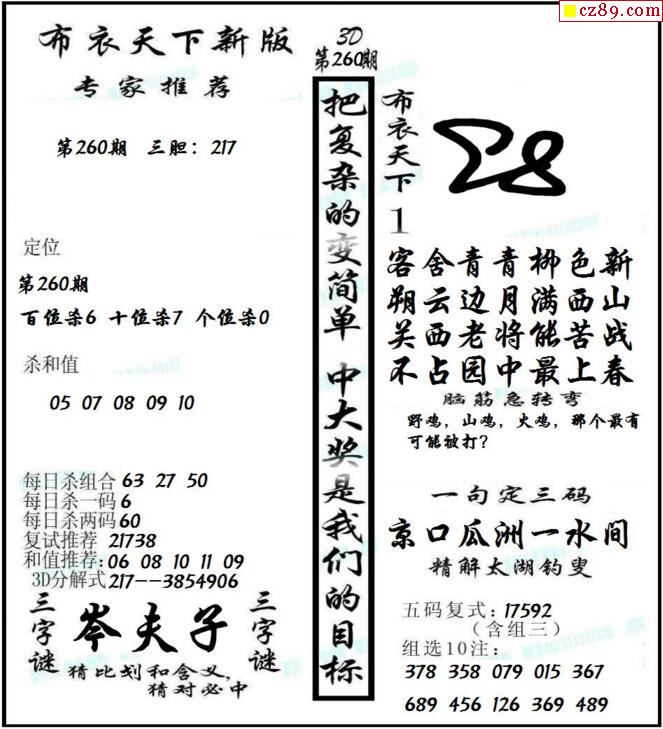 cz89.com
布衣天下新版
专家推荐
3D
第260期
第260期 三胆：217
定位
第260期
百位杀6 十位杀7 个位杀0
杀和值
05 07 08 09 10
每日杀组合 63 27 50
每日杀一码 6
每日杀两码 60
复试推荐 21738
和值推荐：06 08 10 11 09
3D分解式 217--3854906
三字谜
岑夫子
三字谜
猜比划和含义，
猜对必中
把复杂的变简单 中大奖是我们的目标
布衣天下1
客舍青青柳色新
朔云边月满西山
关西老将能苦战
不占园中最上春
脑筋急转弯
野鸡，山鸡，火鸡，那个最有
可能被打？
一句定三码
京口瓜洲一水间
精解太湖钓叟
五码复式：17592
（含组三）
组选10注：
378 358 079 015 367
689 456 126 369 489